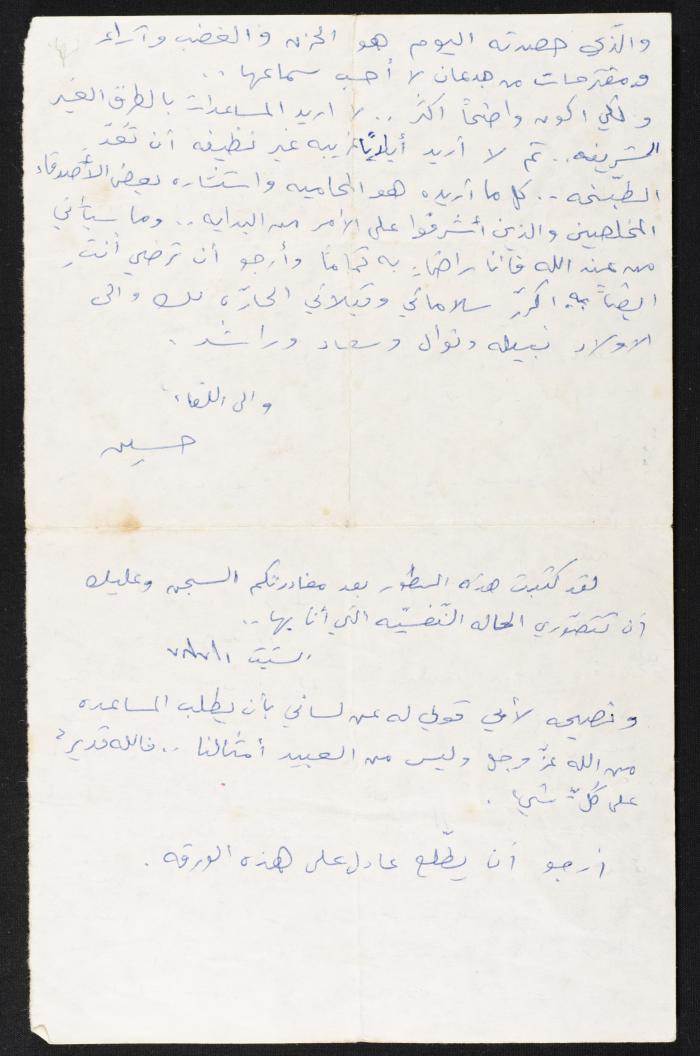 والذي حصدته اليوم هو الحزن والغضب وآراء
ومقترحات من جدعان لا أحب سماعها ..
ولكي اكون واضحاً اكثر .. لا اريد المساعدات بالطرق الغير
الشريفه .. ثم لا أريد أيادياً غريبه غير نظيفه أن تُعِدّ
الطبخه .. كل ما أريده هو المحاميه واستشاره بعض الأصدقاء
المخلصين والذين أشرفوا على الأمر من البدايه .. وما سيأتي
من عند الله فأنا راضٍ به تماماً وأرجو أن ترضي أنتِ
ايضاً به اكرّر سلاماتي وقبلاتي الحارّه لك والى
الاولاد نبيله ونوال وسعاد وراشد .
والى اللقاء
حسين
لقد كتبت هذه السطور بعد مغادرتكم السجن وعليك
أن تتصوّري الحاله النّفسيّه التي أنا بها ..
السبت
ونصيحه لأبي قولي له عن لساني بأن يطلب المساعده
من الله عزّ وجل وليس من العبيد أمثالنا .. فالله قدير
على كلّ شيء .
أرجو أن يطّلع عادل على هذه الورقه .